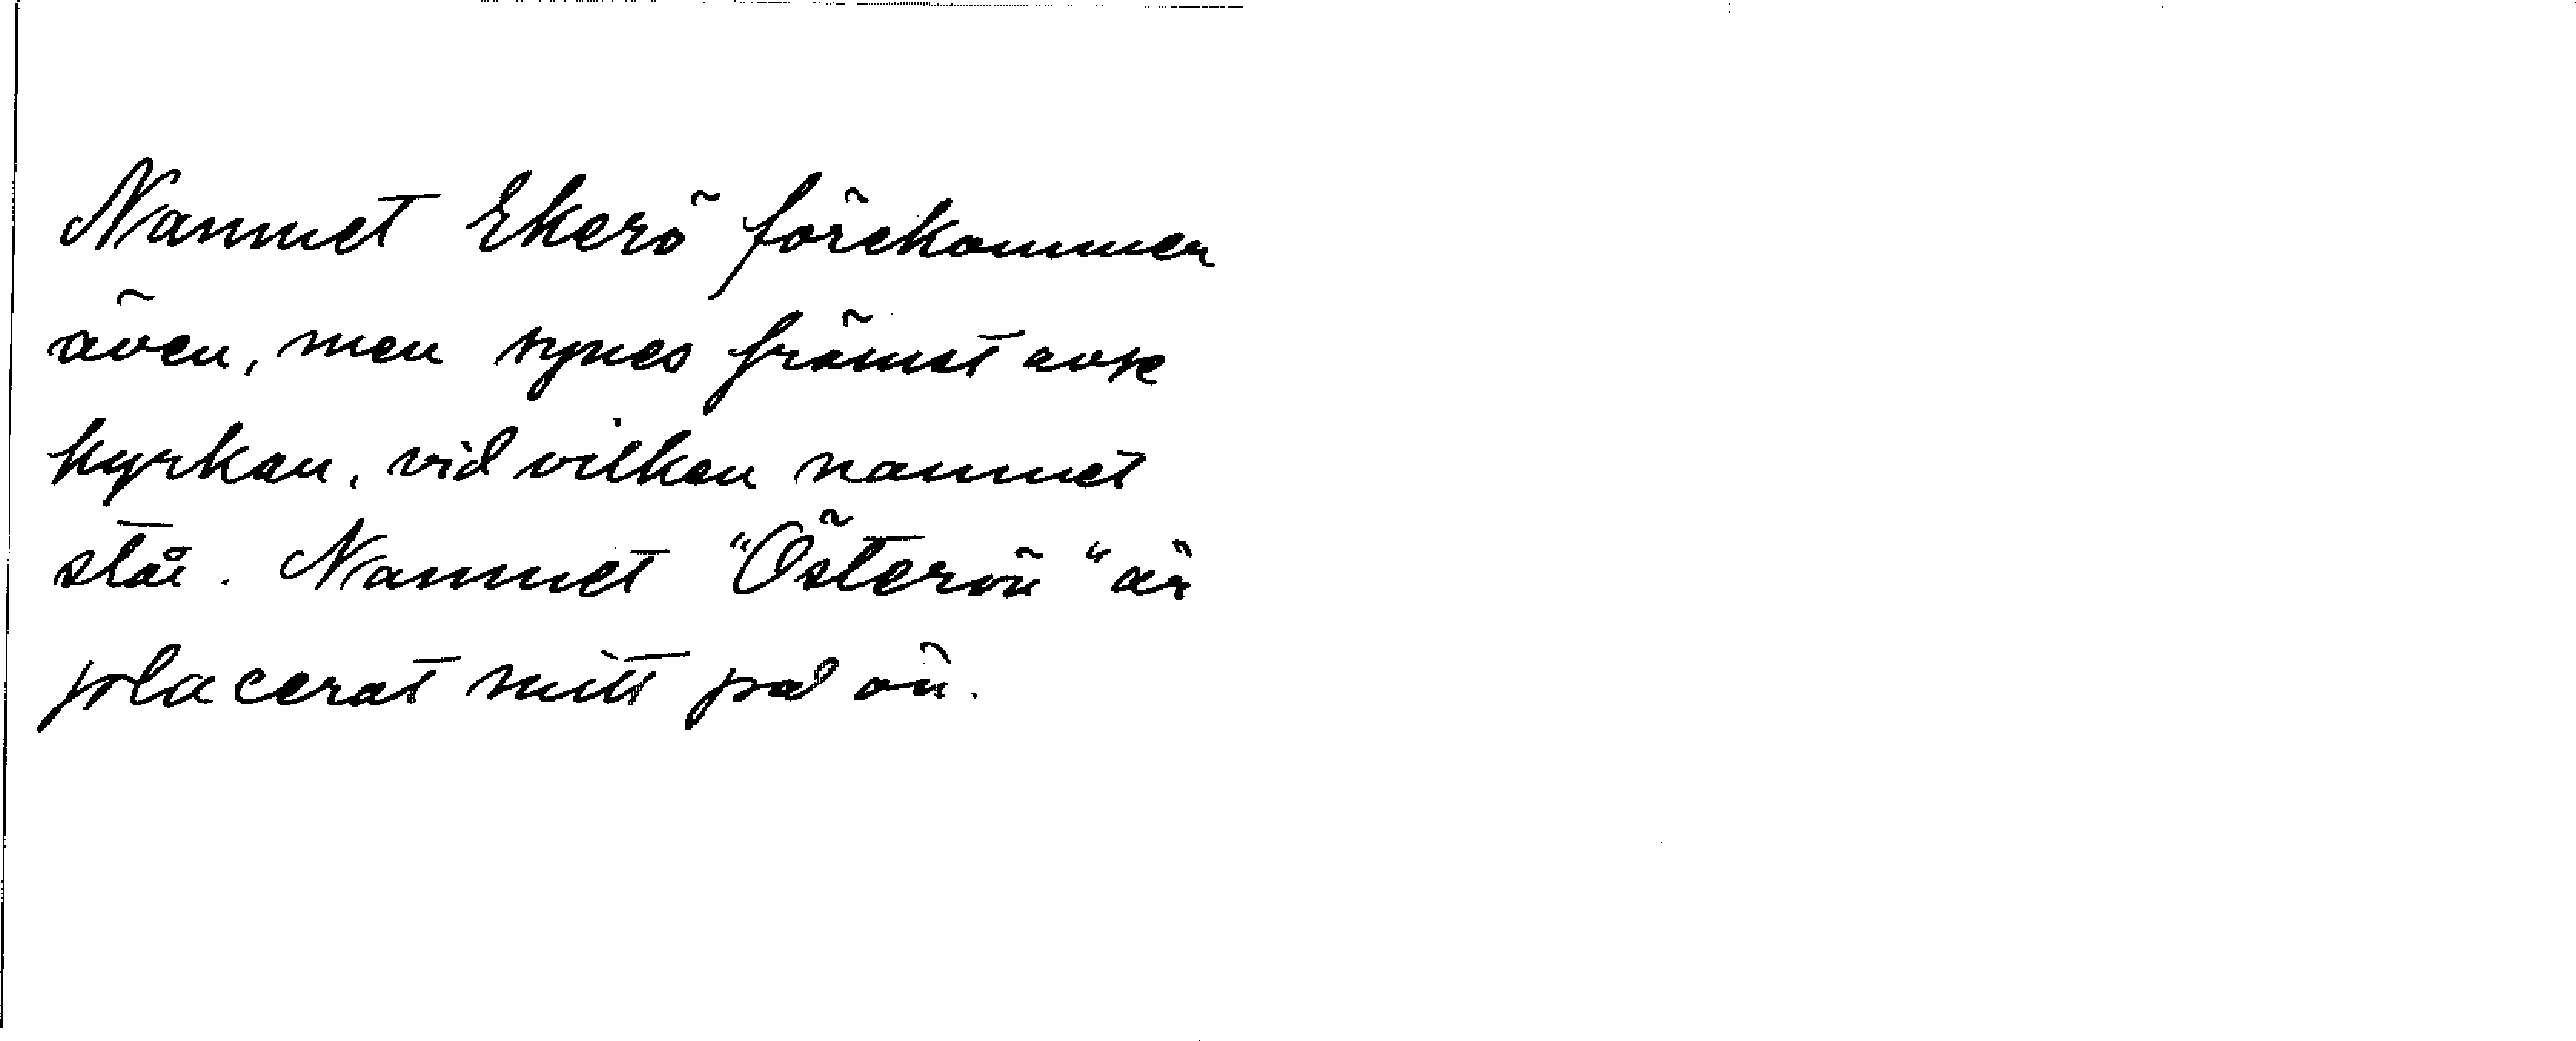 Namnet Ekerö förekommer
även, men synes främst avse
kyrkan, vid vilken namnet
står. Namnet "Österön" är
placerat mitt på ön.